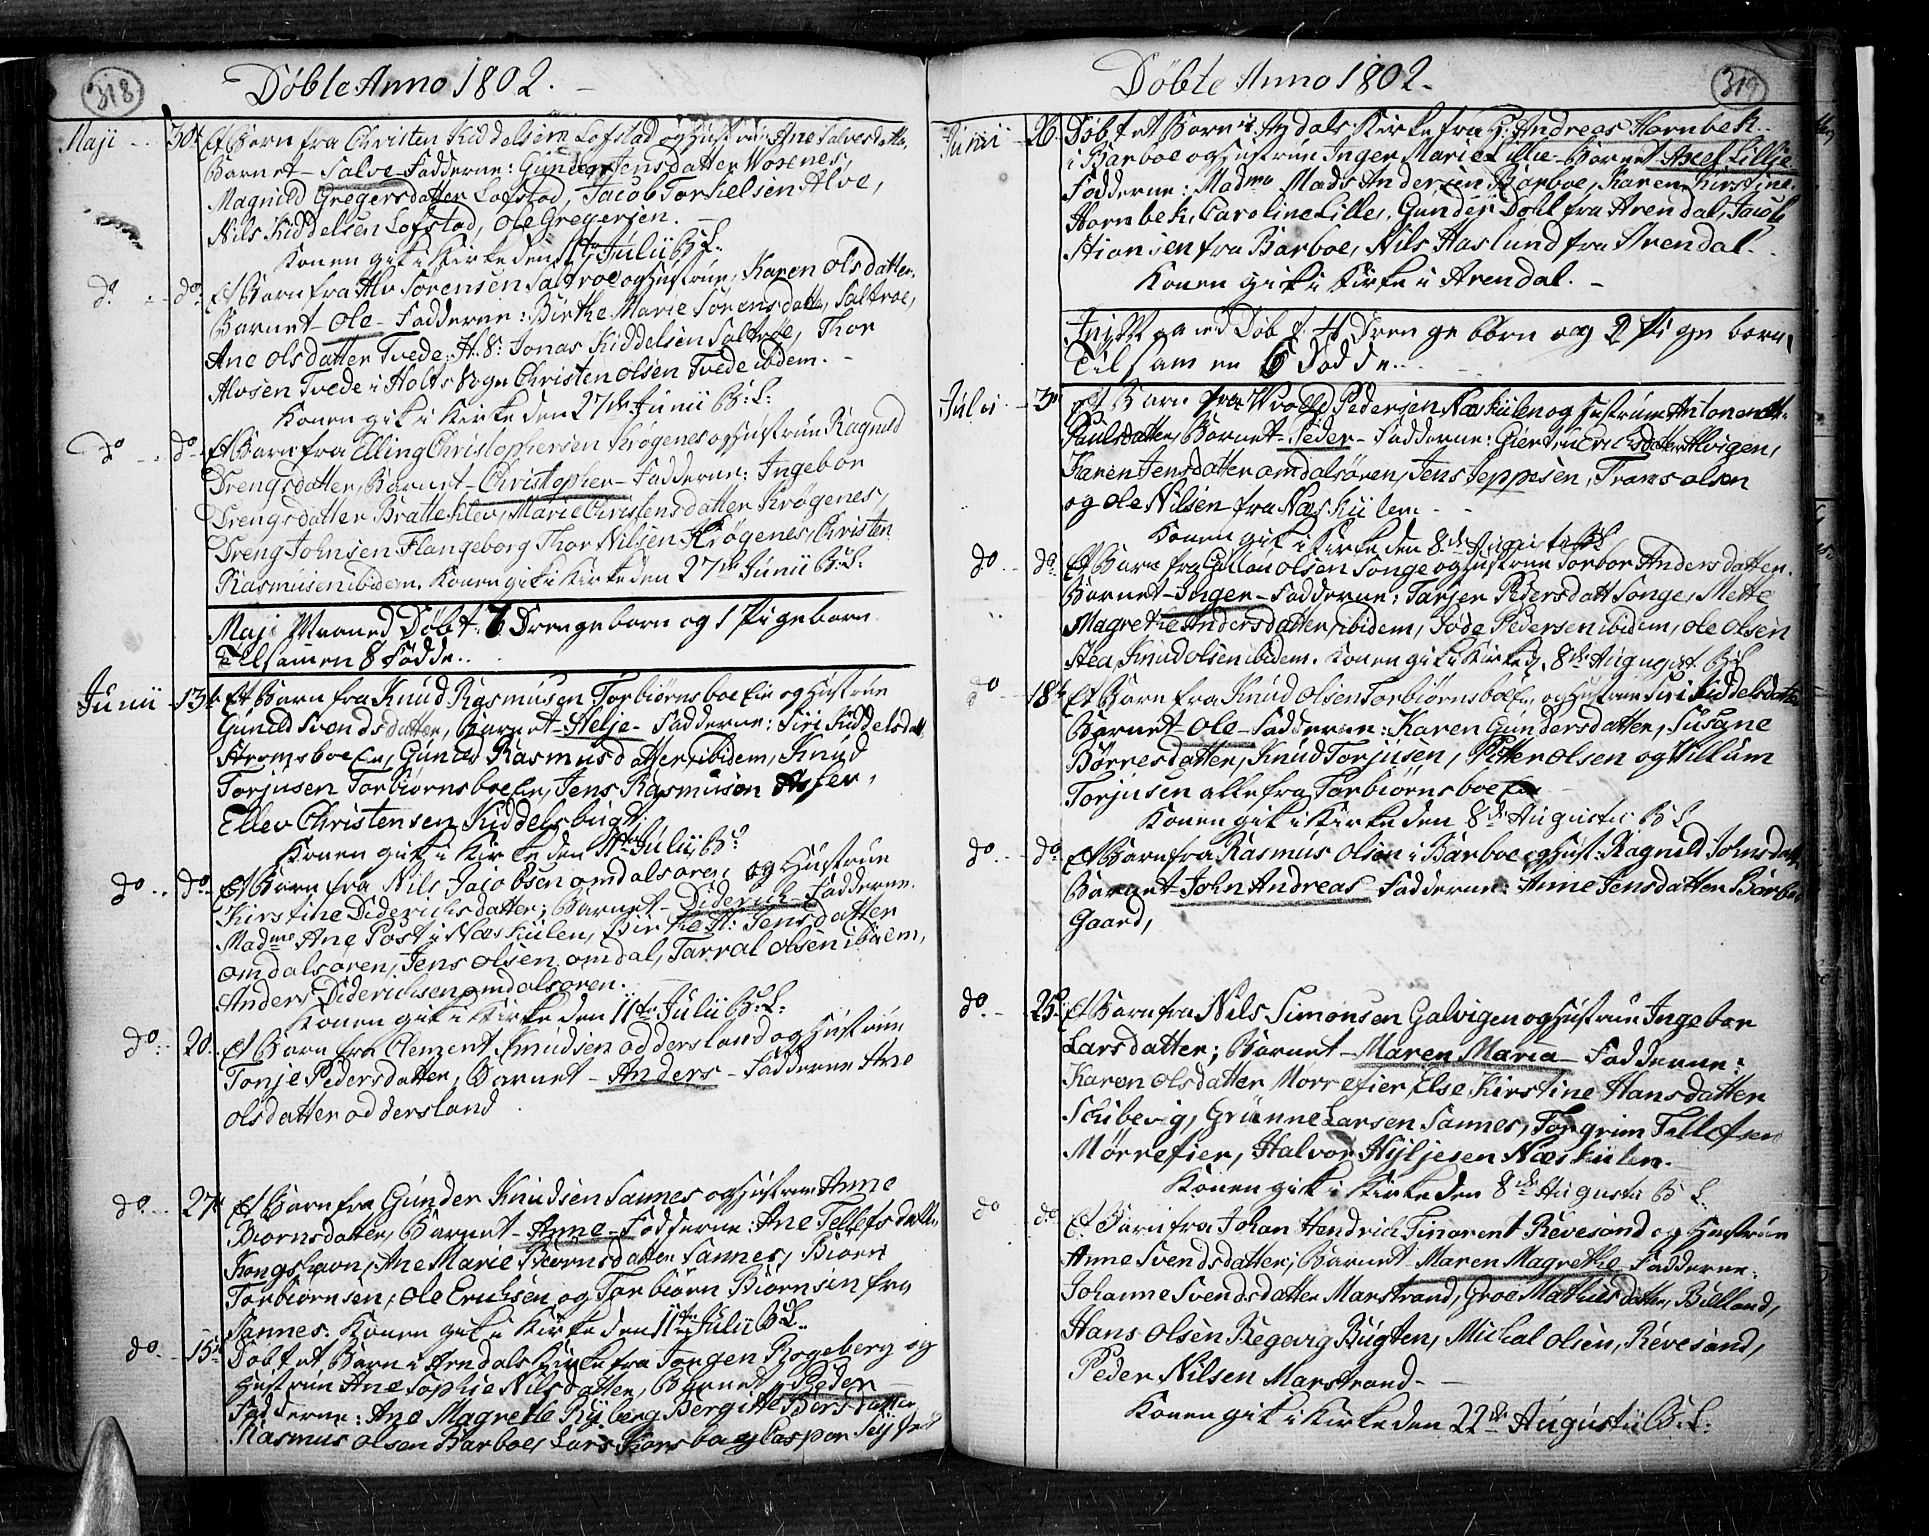 318
Döbte Anno 1802.
Maji 30te Et Barn fra Christen Kiddelsen Lofstad og Hustrue Ane Salvesdatter
Barnet - Salve - Fadderne: Gunder Jensdatter Wosenes,
Magnild Gregersdatter Lofstad, Jacob Torkelsen Alve,
Nils Kiddelsen Lofstad, Ole Gregersen.
Konen gik i Kirke den 11te Julii B: L:
do do Et Barn fra Alv Sörensen Saltroe og Hustrue, Karen Olsdatter.
Barnet - Ole - Fadderne: Birthe Marie Sörensdatter, Saltroe,
Ane Olsdatter Tvede, H: S: Jonas Kiddelsen Saltröe, Thor
Alvsen Tvede i Holts Sogn Christen Olsen Tvede ibdem.
Konen gik i Kirke den 27de Junii B: L:
do do Et Barn fra Elling Christophersen Krögenes og Hustrue Ragnild
Drengsdatter, Barnet - Christopher - Fadderne: Ingebor
Drengsdatter Bratteklev, Marie Christensdatter Krögenes,
Dreng Johnsen Flangeborg Thor Nilsen Krögenes, Christen
Rasmusen ibidem. Konen gik i Kirke den 27de Junii B: L:
Maji Maaned Döbt: 7 Drengebörn og 1 Pigebarn
Tilsamen 8 Födde..
Junii 13te Et Barn fra Knud Rasmusen Torbiörnsboe Eie og Hustrue
Gunild Svendsdatter, Barnet - Helje - Fadderne: Siri Kiddelsdatt
Strömsboe Eie, Gunild Rasmusdatter ibidem, Knud
Torjusen Torbiörnsboe Eie, Jens Rasmusen Asfer,
Ellev Christensen Kiddelsbugt,
Konen gik i Kirke den 11te Julii B:
do do Et Barn fra Nils Jacobsen Omdalsören, og Hustrue
Kirstine Diderichsdatter; Barnet - Diderich - Fadderne.
Madme Ane Post i Næskilen, Birthe M: Jensdatter
Omdalsören, Jens Olsen Omdal, Tarral Olsen ibidem,
Anders Diderichsen Omdalsören.
Konen gik i Kirke den 11te Julii B: L:
do 20 Et Barn fra Clement Knudsen Oddersland og Hustrue
Tonje Pedersdatter, Barnet - Anders - Fadderne Ane
Olsdatter Oddersland
do 27de Et Barn fra Gunder Knudsen Sannes og Hustrue Anne
Biörnsdatter, Barnet - Anne - Fadderne: Ane Tellefsdatter
Kongshavn, Ane Marie Biörnsdatter Sannes, Biörn
Torbiörnsen, Ole Erichsen og Torbiörn Biörnsen fra
Sannes. Konen gik i Kirke den 11te Julii B: L:
do 15 Döbt et Barn i Arndals Kirke fra Jörgen Bogeberg og
Hustrue Ane Sophie Nilsdatter, Barnet - Peder -
Fadderne: Ane Magrethe Ryberg Bergitte Persdatter,
Rasmus Olsen Barboe, Lars og Casper
319
Döbte Anno 1802.
Junii 26 Döbt et Barn i Ardals Kirke fra H: Andreas Hornbek
i Barboe og Hustrue Inger Marie Lillie - Barnet Axel Lillie
Fadderne: Madme Mads Andersen Barboe, Karen Kirstine
Hornbek, Caroline Lillie, Gunder Dahl fra Arendal, Jacob
Stiansen fra Barboe, Nils Haslund fra Arendal.
Konen gik i Kirke i Arendal.
Junii Maaned Döbt. 4 Drengebörn og 2 Pigebörn,
Tilsamen 6 Födde.
Julii 3de Et Barn fra Wrolld Pedersen Næskilen og Hustrue Antonette
Paulsdatter, Barnet - Peder - Fadderne: Giertrud Erichsdatter Alvigen,
Karen Jensdatter Omdalsören, Jens Jeppesen, Frans Olsen
og Ole Nilsen fra Næskilen.
Konen gik i Kirke den 8de Augusti B: L:
do do Et Barn fra Ole Olsen Songe og Hustrue Torbor Andersdatter.
Barnet - Inger - Fadderne: Tarjer Pedersdatt Songe, Mette
Magrethe Andersdatter, ibidem, Gode Pedersen ibidem, Ole Olsen
Stea, Knud Olsen ibidem. Konen gik i Kirke d. 8de August B: L:
do 18de Et Barn fra Knud Olsen Torbiörnsboe Eie, og Hustrue Siri Kiddelsdatter
Barnet - Ole - Fadderne: Karen Gundersdatter, Susane
Börresdatter, Knud Torjusen, Peter Olsen og Villum
Torjusen alle fra Torbiörnsboe Eie
Konen gik i Kirke den 8de Augustii B: L
do do Et Barn fra Rasmus Olsen i Barboe og Hust: Ragnild Johnsdatter
Barnet - John Andreas - Fadderne: Anne Jensdatter Barboe
Gaard,
do. 25 Et Barn fra Nils Simonsen Galvigen og Hustrue Ingebor
Larsdatter; Barnet - Maren Maria - Fadderne:
Karen Olsdatter Mörrefier, Else Kirstine Hansdatter
Schibevig, Grunne Larsen Sannes, Torgrim Tellefsen
Mörrefier, Halvor Hyljesen Næskilen.
Konen gik i Kirke den 8de Augusti B: L.
do do Et Barn fra Johan Hendrich Finorent Revesand og Hustrue
Anne Svendsdatter; Barnet - Maren Magrethe - Fadderne:
Johanne Svendsdatter Marstrand, Groe Mathiisdatter, Billand,
Hans Olsen Regevig Bugten, Michal Olsen, Revesand,
Peder Nilsen Marstrand -
Konen gik i Kirke den 22de Augustii B: L: